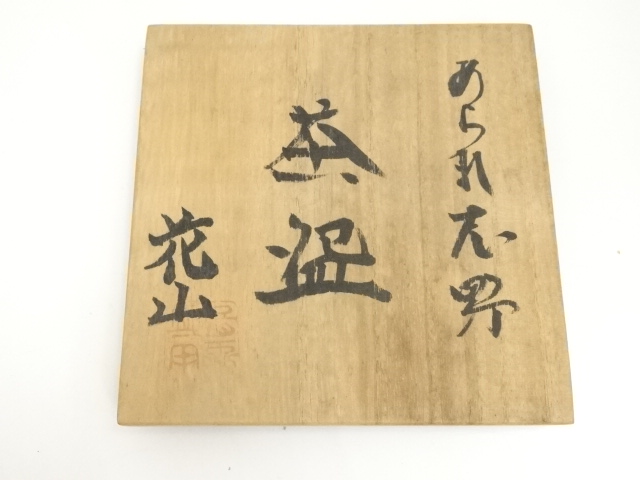 あられ志野
茶盌
花山